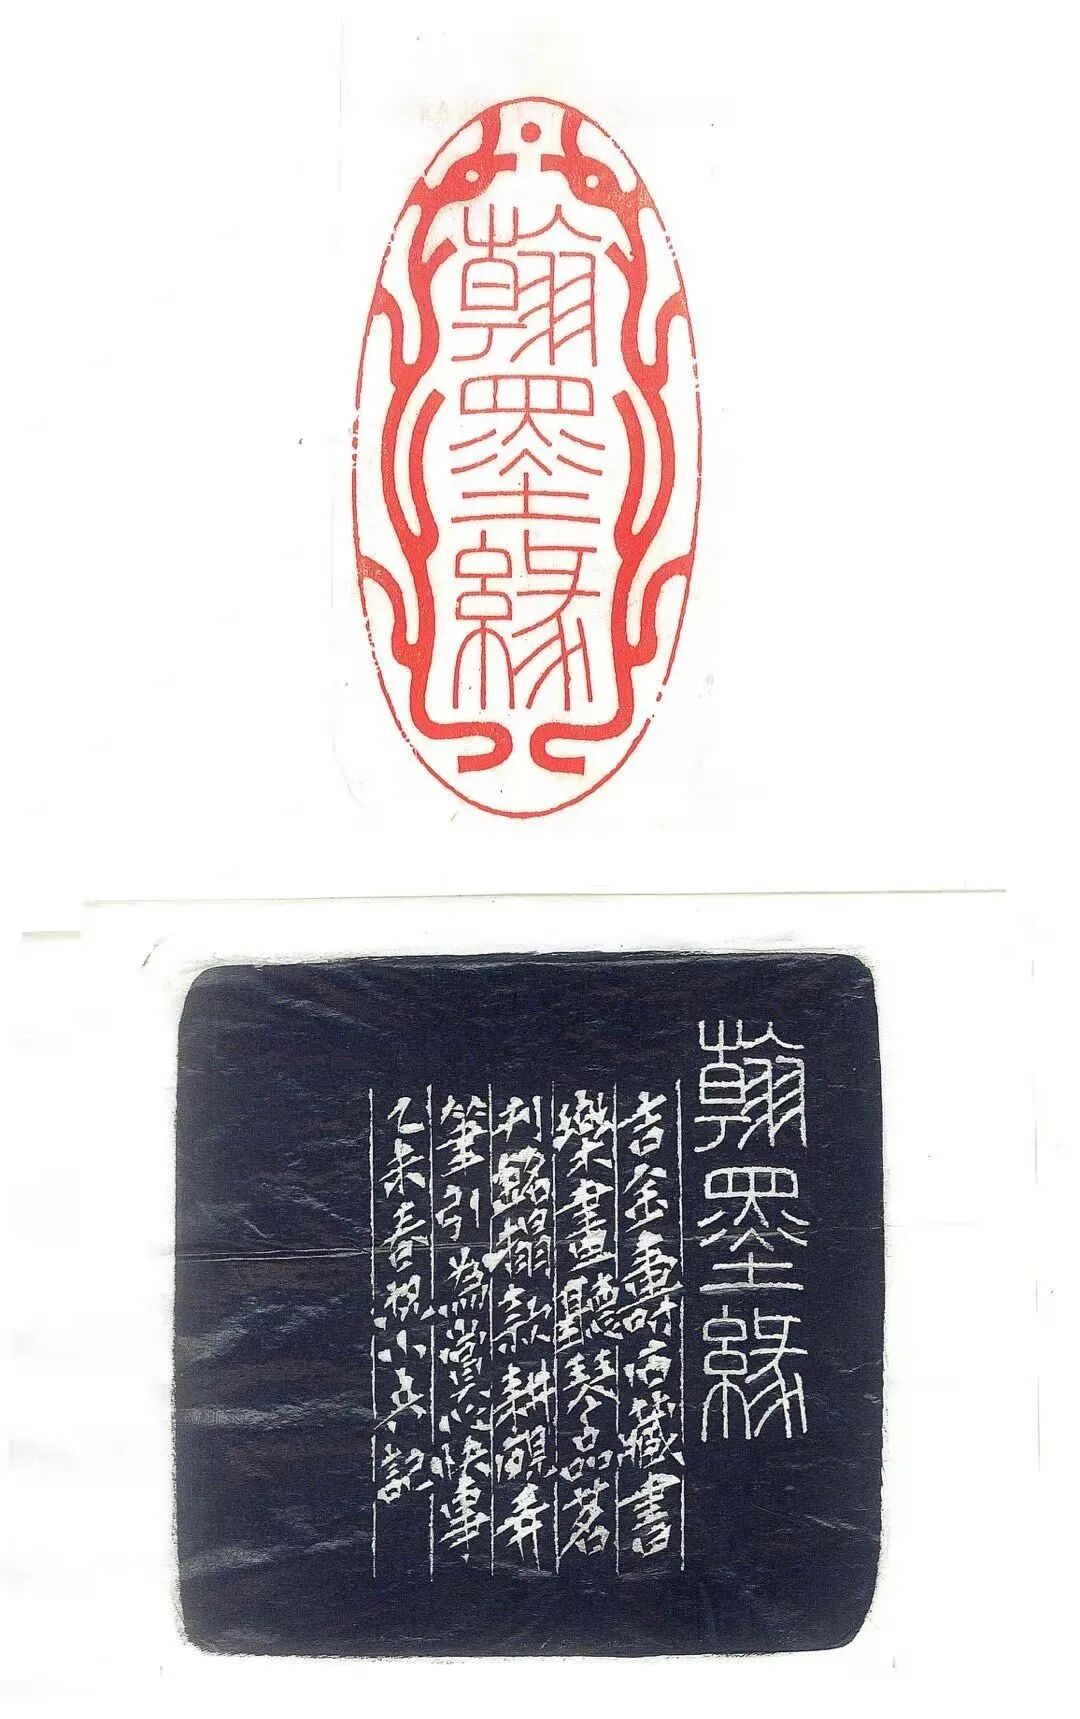 翰墨緣
翰墨緣
吉金壽石藏書
樂畫聽琴品茗
刊銘搨款耕硯弄
筆引為賞心快事
乙未春祝小兵記